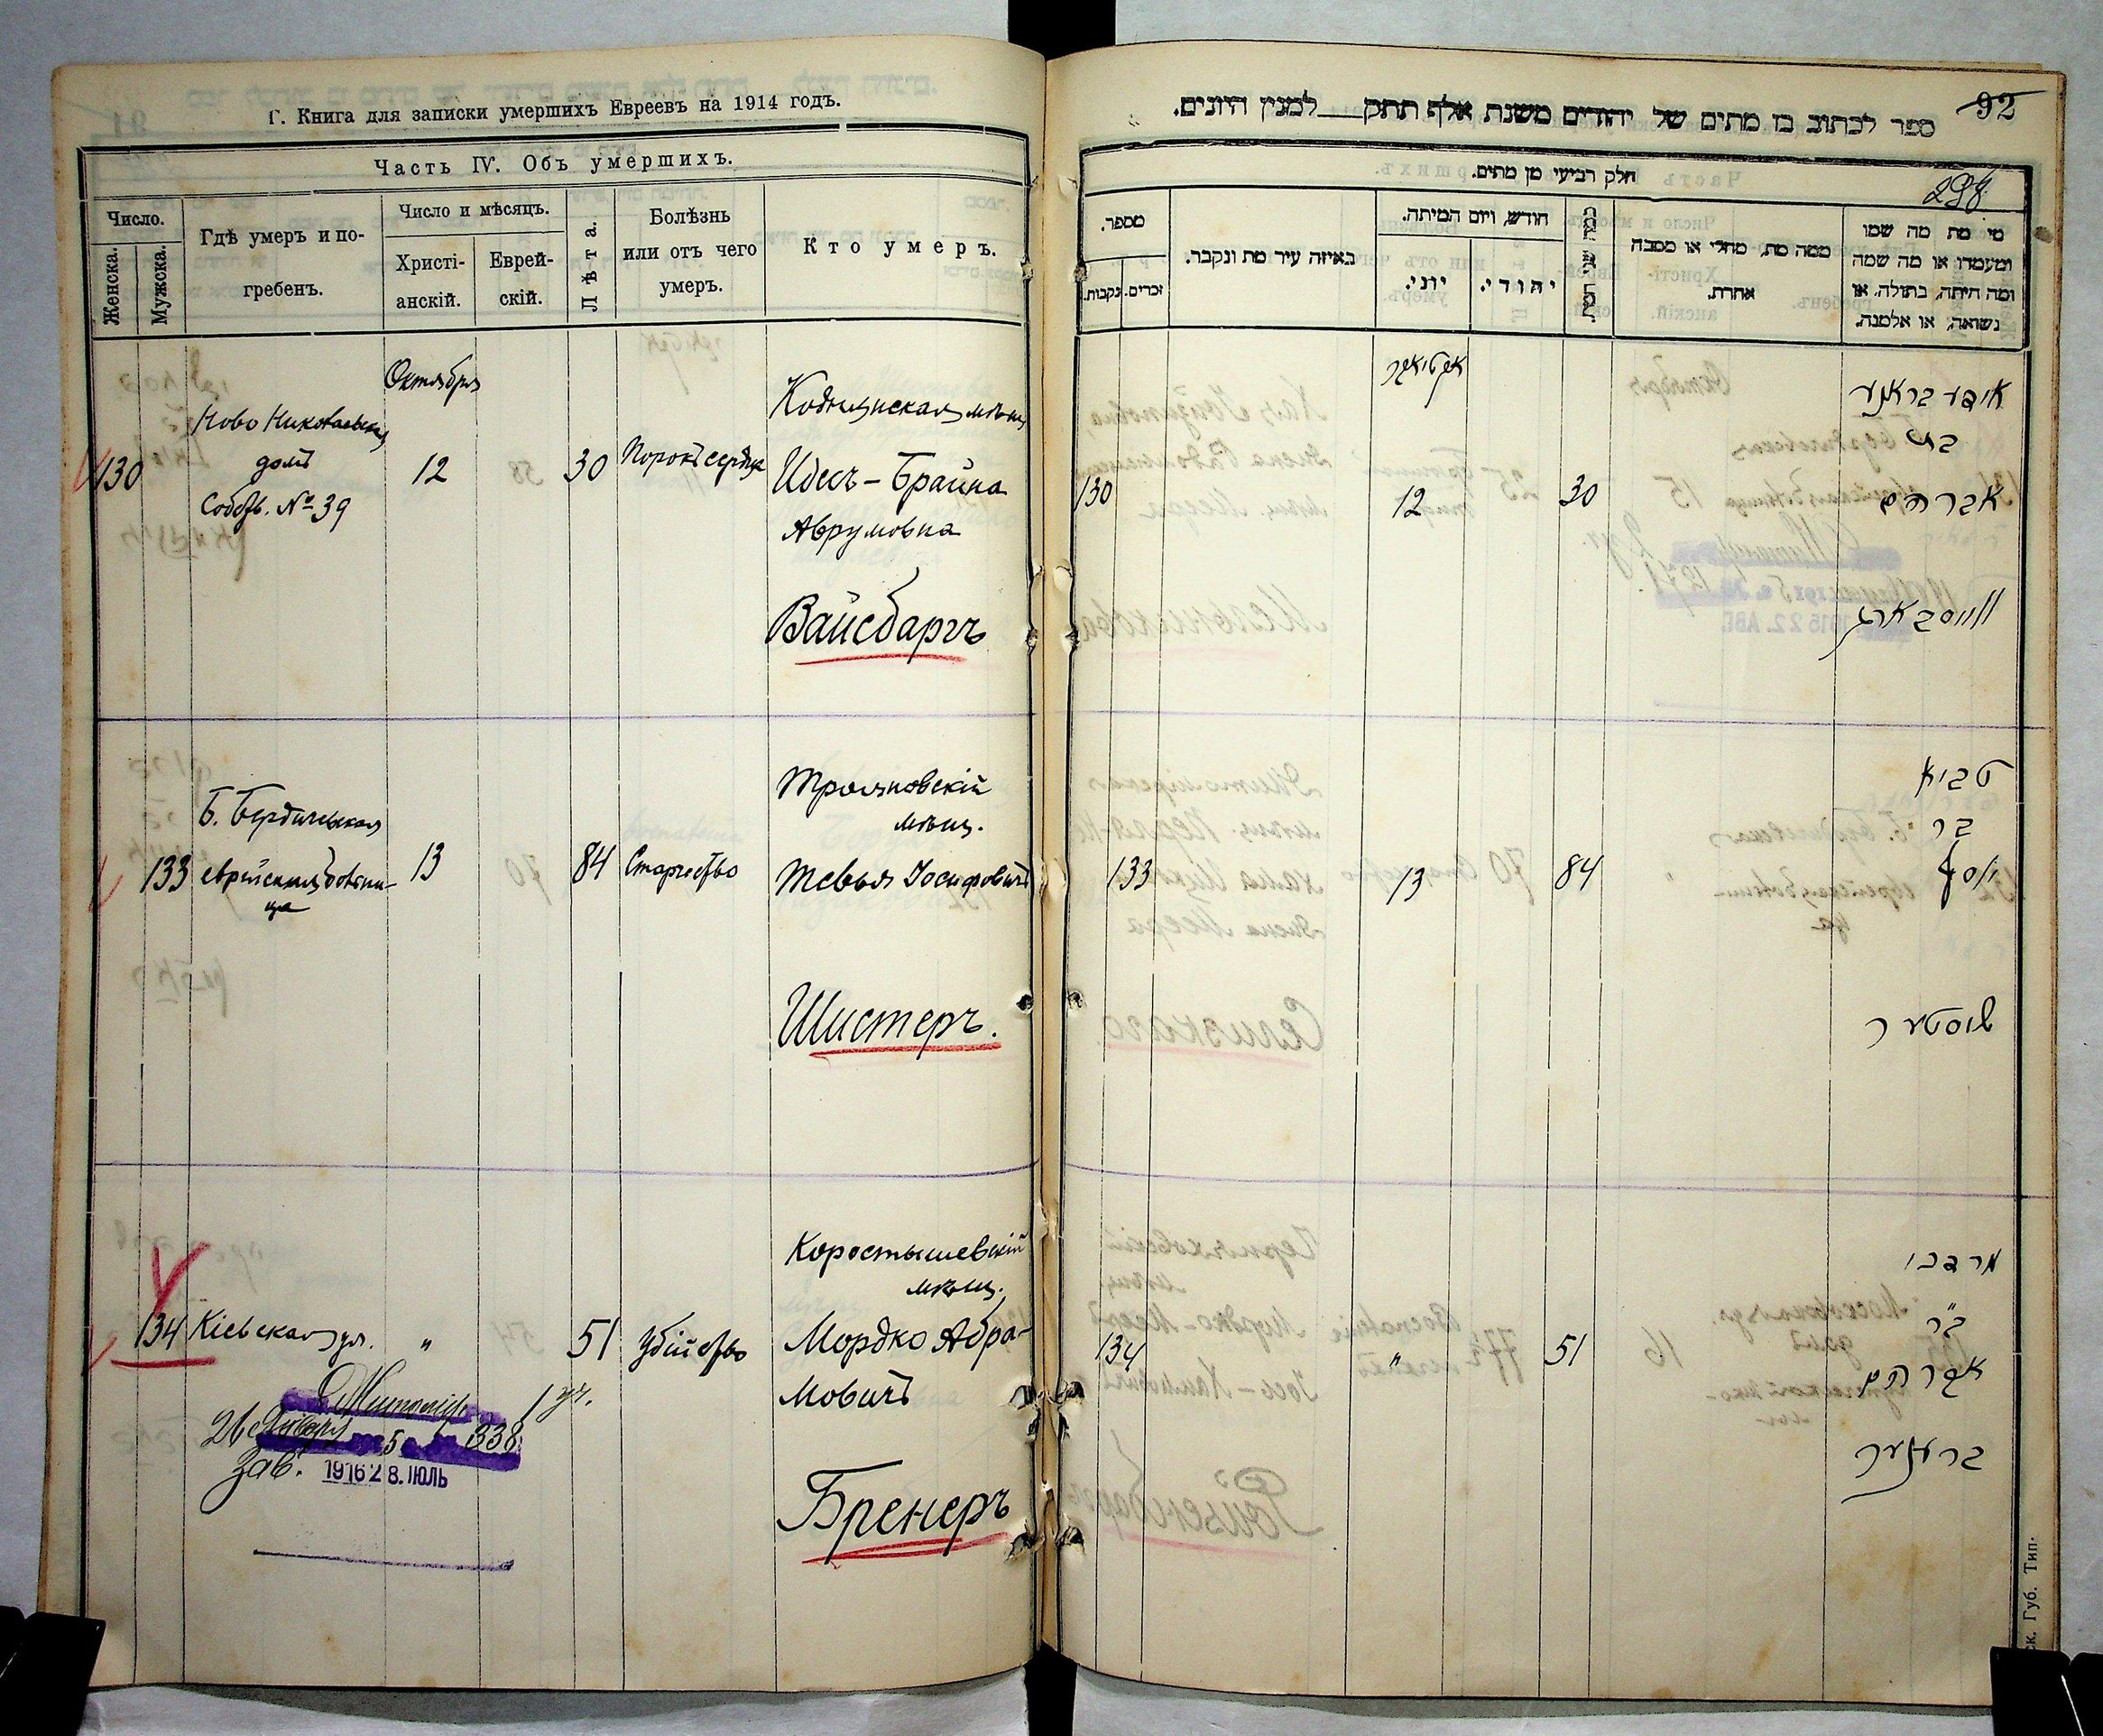 Г. Книга для записки умершихъ Евреевъ на 1914 годъ.
Часть IV. Объ умершихъ.
Число.
Женска.
Мужска.
Гдѣ умеръ и по-
гребенъ.
Число и мѣсяцъ.
Христі-
анскій.
Еврей-
скій.
Лѣта.
Болѣзнь
или отъ чего
умеръ.
Кто умеръ.
130
Ново Николаевская
домъ
Собств. № 39
Октября
12
30
Порокъ сердца
мѣщ
Идесъ-Брайна
Аврумовна
Вайсбаргъ
133
Б. Бердичевская
еврейская больни-
ца
13
84
Старчество
Трояновскій
мѣщ.
Тевья Іосифовичъ
Шистеръ.
134
Кіевская ул.
"
51
Убійство
Коростышевскій
мѣщ.
Мордко Абра-
мовичъ
Бренеръ
1916 28. ІЮЛЬ
92
ספר לכתוב בו מתים של יהודים משנת אלף תתק למנין היונים.
298
חלק רביעי מן מתים.
מספר.
זכרים.
נקבות.
באיזה עיר מת ונקבר.
חודש, ויום המיתה.
יוני.
יהודי.
כמה שני המת
ממה מת, מחלי או מסבה
אחרת.
מי מת מה שמו
ומעמדו או מה שמה
ומה היתה, בתולה, או
נשואה, או אלמנה.
130
אקטיאבר
12
30
בת
אברהם
ווייסבארג
133
13
84
טביא
בר
יוסף
שוסטער
134
"
51
מרדכי
בר
אברהם
ברענער
ск. Губ. Тип.